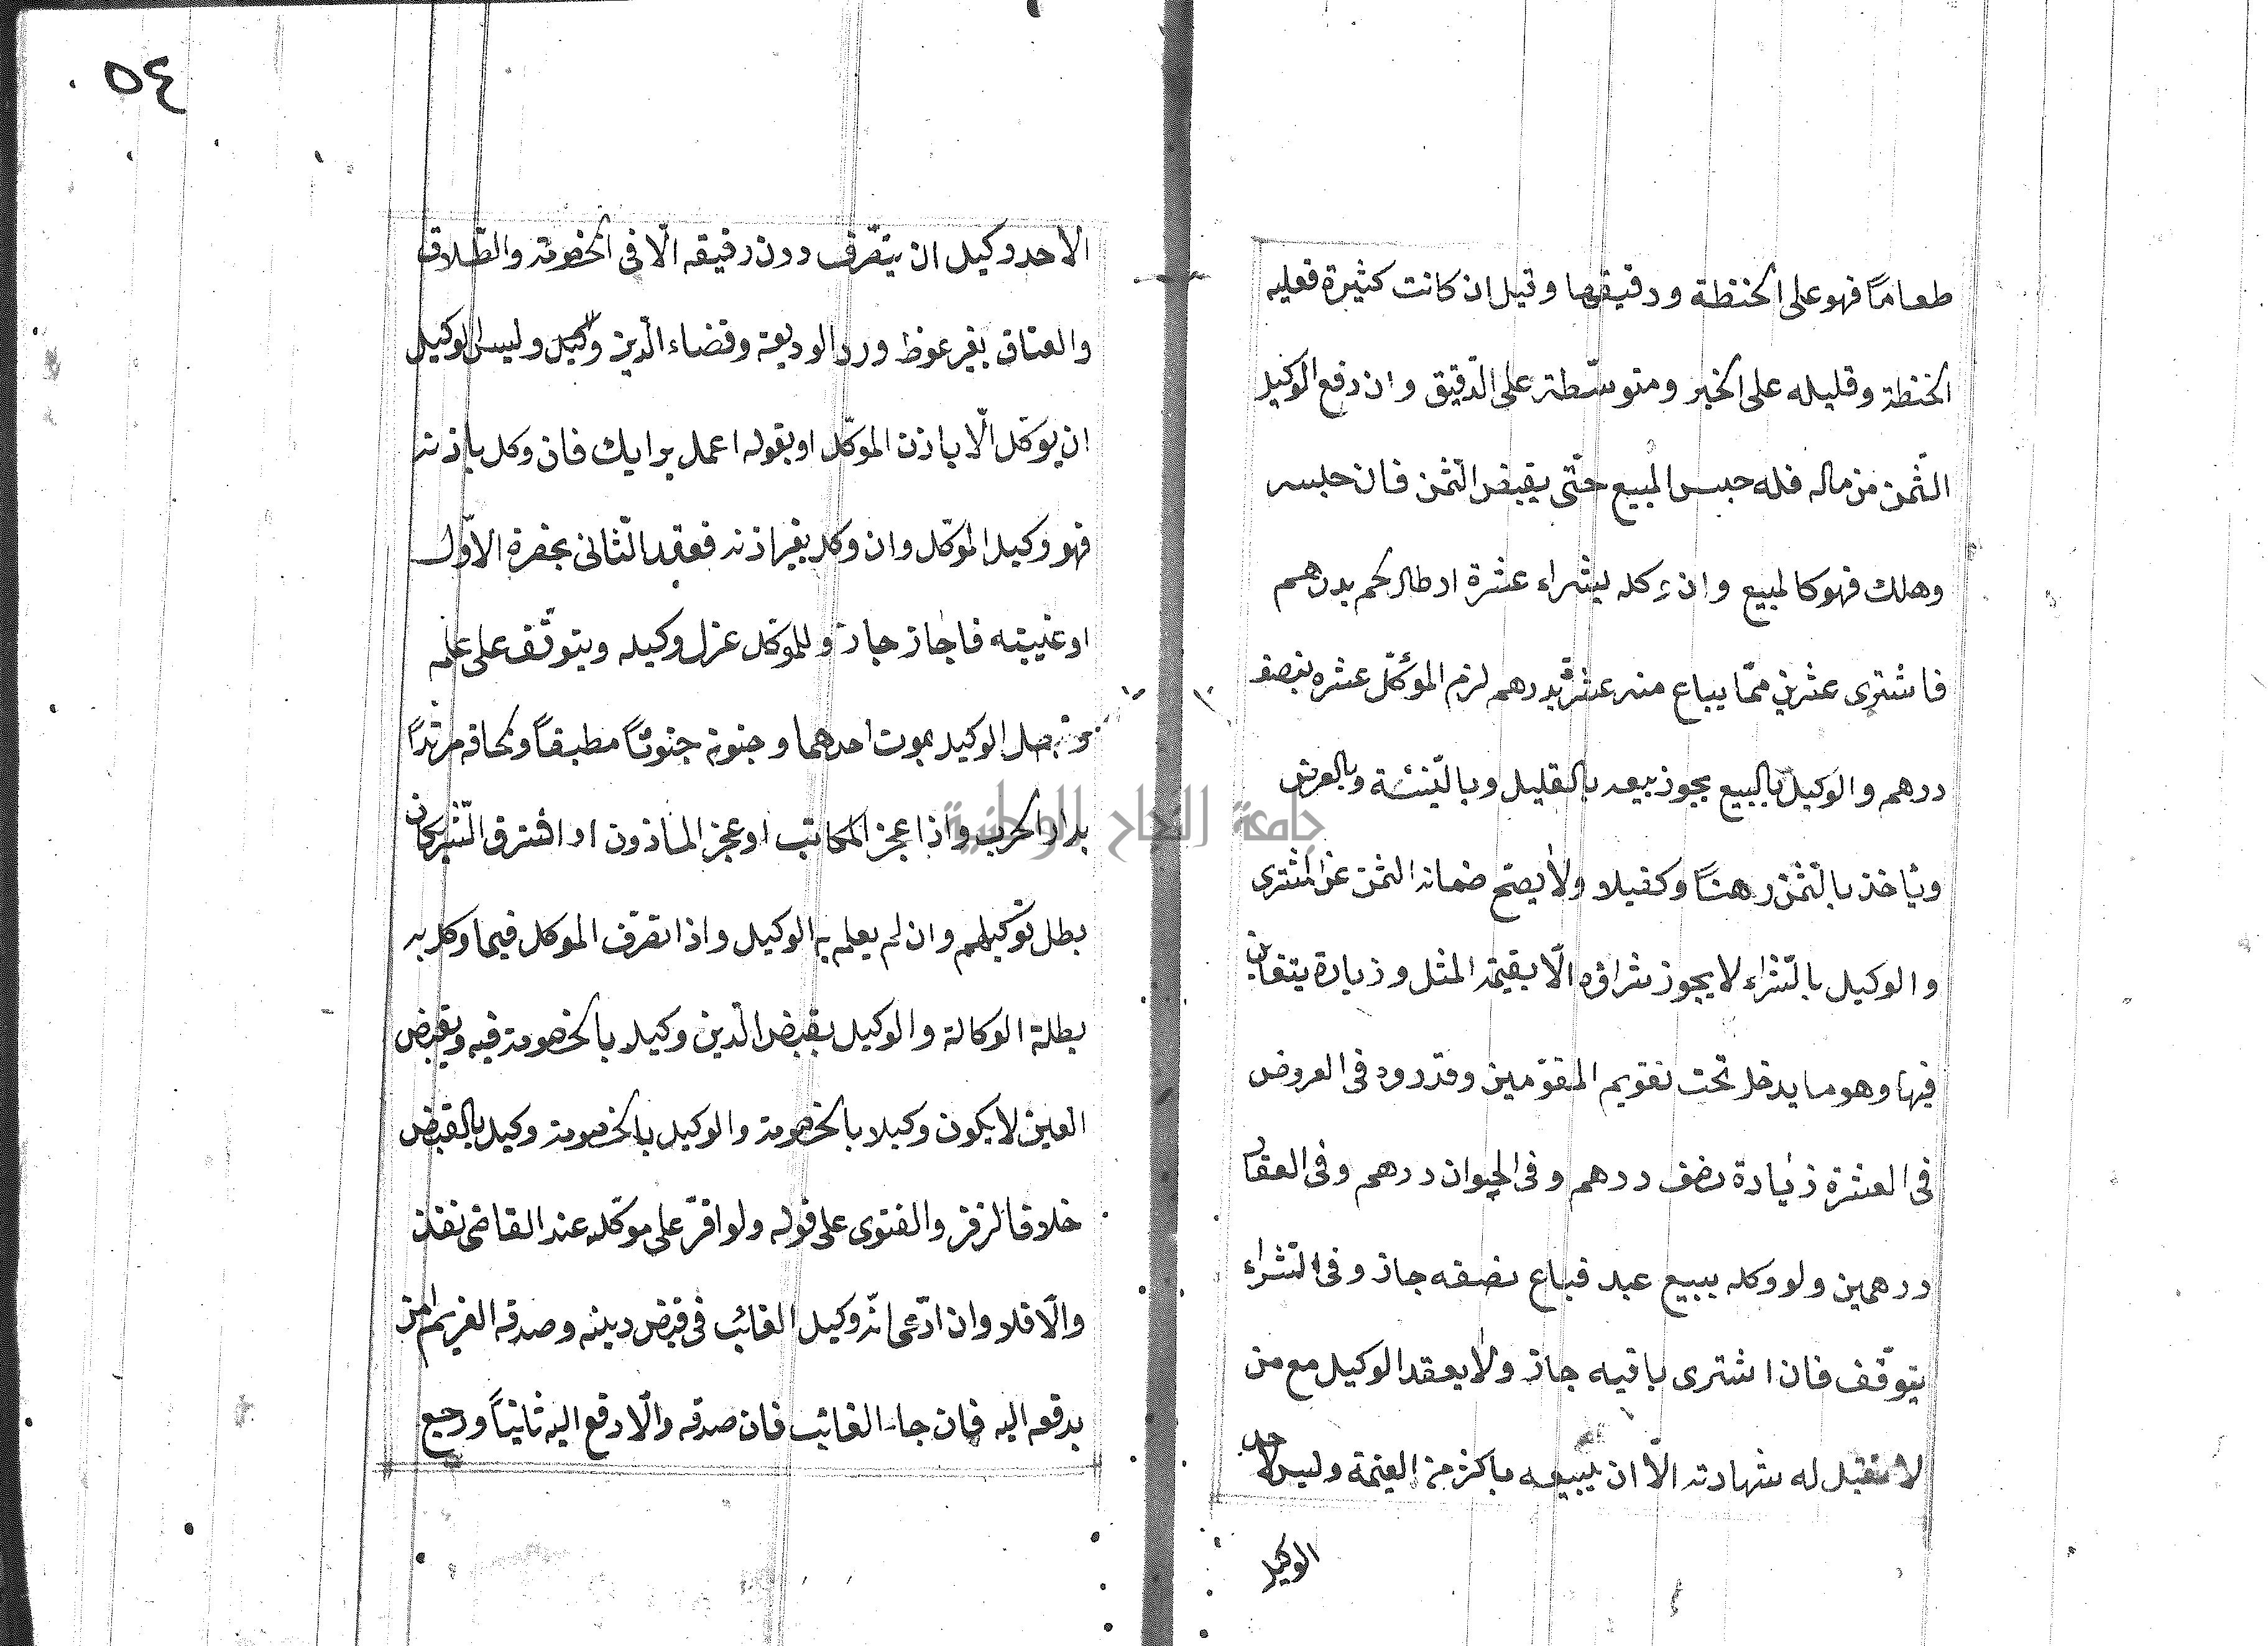 طعاماً فهو على الحنظة ودقيقها وقيل ان كانت كثيرة فعليه
الحنظة وقليله على الخبر ومتوسّطة على الدّقيق وان دفع الوكيل
الثّمن من ماله فله حبس المبيع حتّى يقبض الثّمن فان حبسه
وهلك فهو كالمبيع وان وكله بشراء عشرة ارطال لحم بدرهم
فاشترى عشرين ممّا يباع منه عشرة بدرهم لزم الموكّل عشره بنصف
درهم والوكيل بالبيع يجوز بيعه بالقليل وبالنّسئة وبالعرض
وياخذ بالثّمن رهناً وكفيلا ولا يصحّ ضمانه الثمن عن المشترى
والوكيل بالشّراء لا يجوز شراؤه الّا بقيمة المثل وزيادة يتغابن
فيها وهو ما يدخل تحت تقويم المقوّمين وقدروه فى العروض
فى العشرة زيادة نصف درهم وفى الحيوان درهم وفى العقار
درهمين ولو وكله ببيع عبد فباع نصفه جاز وفى الشّراء
يتوقّف فان اشترى باقيه جاز ولا يعقد الوكيل مع من
لا تقبل له شهادته الّا ان يبيعه باكثر من القيمة وليس لاحد
الوكيل
٥٤
الاحد وكيل ان يتصّرف دون رفيقه الّا فى الخصومة والطّلاق
والعتاق بغير عوظ وردّ الوديعة وقضاء الدّين وليس للوكيل
ان يوكّل الّا باذن الموكّل او بقوله اعمل برايك فان وكل باذنه
فهو وكيل الموكّل وان وكل بغير اذنه فعقد الثّانى بحضرة الاوّل
او غيبته فاجاز جاز وللموكّل عزل وكيله ويتوقّف على علمه
الوكيل بموت احدهما وجنونه جنونّاً مطبقاً ولحاقه مرتدّاً
بدار الحرب واذا عجز المكاتب او عجز الماذون او افترق الشّريكان
بطل توكيلهم وان لم يعلم به الوكيل واذا تصرف الموكل فيما وكل به
بطلة الوكالة والوكيل بقبض الدّين وكيل بالخصومة فيه وبقبض
العين لا يكون وكيلا بالخصومة والوكيل بالخصومة وكيل بالقبض
خلافا لزفر والفتوى على قوله ولو اقرّ على موكّله عند القاضى نفذ
والّا فلا وان ادّعى انّه وكيل الغائب فى قبض دينه وصدقه الغريم امر
بدفعه اليه فان جاء الغائب فان صدقه والّا دفع اليه ثانياً ورجع
جامعة النجاح الوطنية